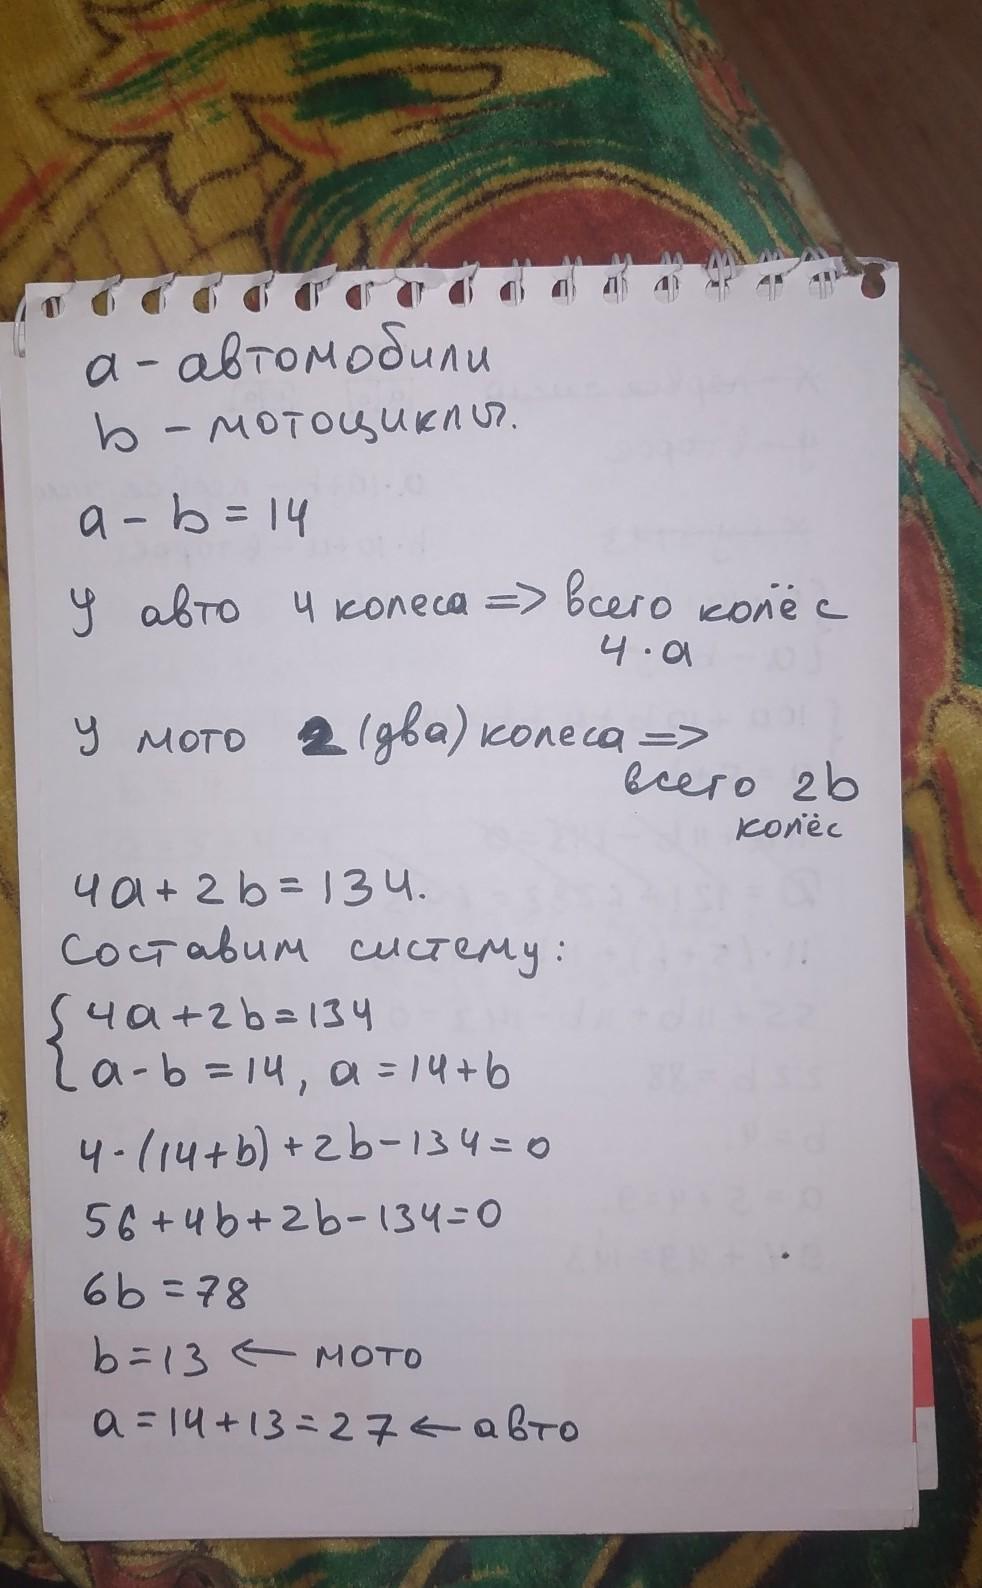 a - автомобили
b - мотоциклы.
a - b = 14
У авто 4 колеса => всего колёс
4 · a
У мото 2 (два) колеса =>
всего 2b
колёс
4a + 2b = 134.
Составим систему:
{ 4a + 2b = 134
a - b = 14, a = 14 + b
4 · (14 + b) + 2b - 134 = 0
56 + 4b + 2b - 134 = 0
6b = 78
b = 13 ← мото
a = 14 + 13 = 27 ← авто